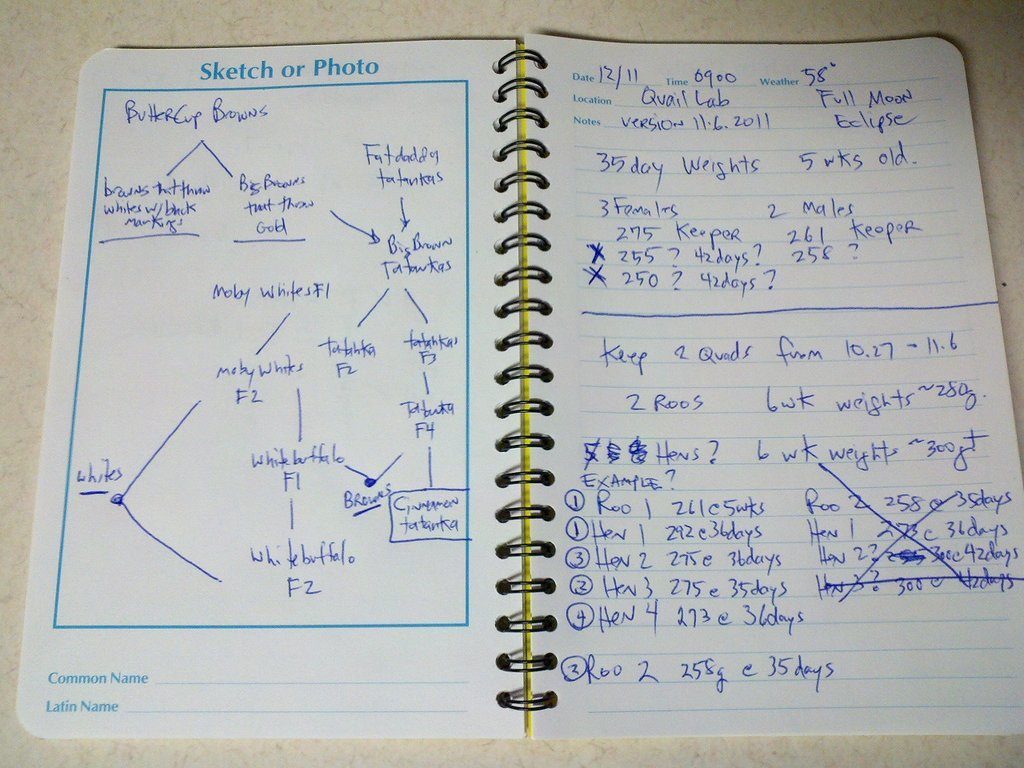 Sketch or Photo
ButterCup Browns
browns that throw
whites w/ black
markings
Big Browns
that throw
Gold
Fatdaddy
tatankas
Big Brown
Tatankas
Moby Whites F1
tatanka
F2
tatankas
F3
Moby Whites
F2
Tatanka
F4
whitebuffalo
F1
whites
Browns
Cinnamon
tatanka
whitebuffalo
F2
Common Name
Latin Name
Date 12/11 Time 0900 Weather 58°
Location Quail Lab Full Moon
Notes Version 11.6.2011 Eclipse
35 day Weights 5 wks old.
3 Females 2 Males
275 Keeper 261 Keeper
X 255 ? 42days? 258 ?
X 250 ? 42days ?
Keep 2 Quads from 10.27 - 11.6
2 Roos 6wk weights ~280g.
Hens? 6 wk weights ~300g+
EXAMPLE?
① Roo 1 261@5wks Roo 2 258@35days
① Hen 1 292@36days Hen 1 273@36days
③ Hen 2 275@ 36days Hen 2? 300@42days
② Hen 3 275@35days Hen 3? 300@ 42days
④ Hen 4 273 @ 36days
③ Roo 2 258g @ 35days